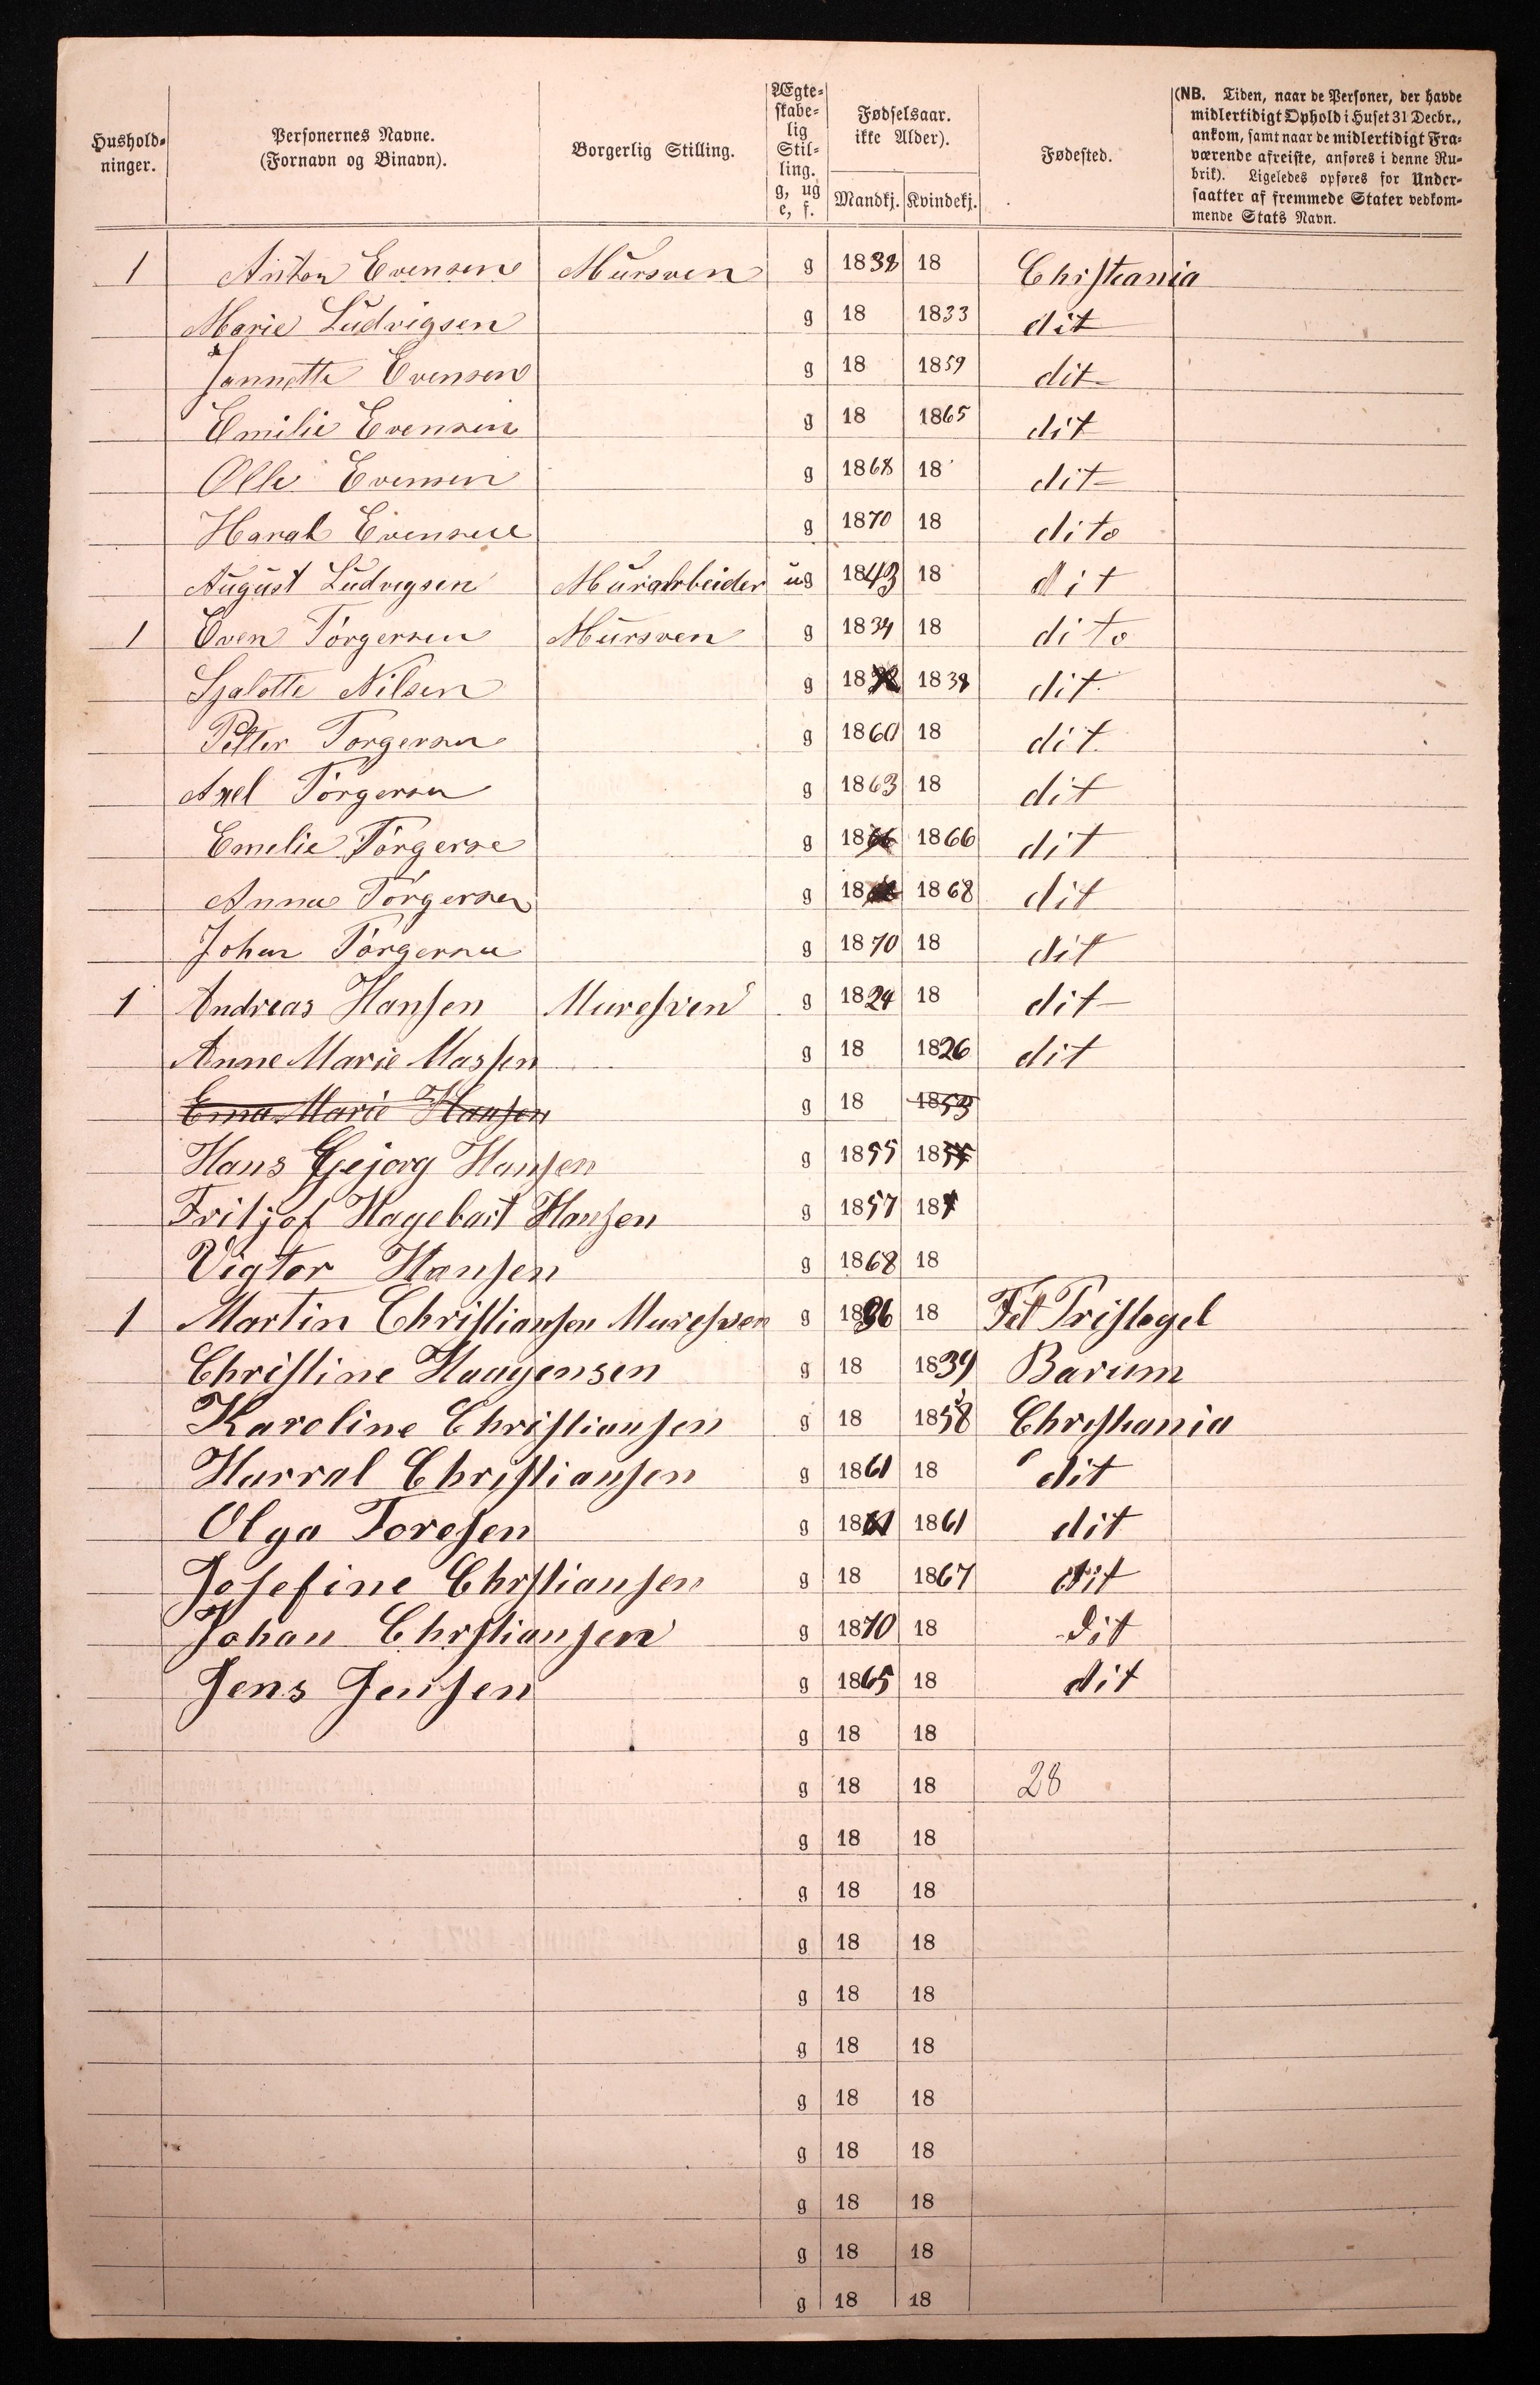 Hushold-
ninger.
Personernes Navne.
(Fornavn og Binavn).
Borgerlig Stilling.
Ægte-
skabe-
lig
Stil-
ling.
g, ug
e, f.
Fødselsaar.
ikke Alder).
Mandkj. Kvindekj.
Fødested.
(NB. Tiden, naar de Personer, der havde
midlertidigt Ophold i Huset 31 Decbr.,
ankom, samt naar de midlertidigt Fra-
værende afreiste, anføres i denne Ru-
brik). Ligeledes opføres for Under-
saatter af fremmede Stater vedkom-
mende Stats Navn.
1 Anton Evensen Mursven g 1838 18 Chisteania
Marie Ludvigsen g 18 1833 dit
Jannette Evensen g 18 1859 dit
Emilie Evensen g 18 1865 dit
Olle Evensen g 1868 18 dit
Haral Evensen g 1870 18 dito
August Ludvigsen Murarbeider ug 1843 18 dit
1 Even Torgersen Mursven g 1834 18 dito
Sjalotte Nilsen g 18 1839 dit
Petter Torgersen g 1860 18 dit
Axel Torgersen g 1863 18 dit
Emelie Torgerse g 1866 1866 dit
Anna Torgersen g 18 1868 dit
Johan Torgersen g 1870 18 dit
1 Andreas Hansen Muresven g 1824 18 dit
Anne Marie Massen g 18 1826 dit
Ema Marie Hansen g 18 1853
Hans Gejorg Hansen g 1855 1855
Fritjof Hagebart Hansen g 1857 18
Vigtor Hansen g 1868 18
1 Martin Christiansen Muresven g 1836 18 Fet Pristegel
Christine Haagensen g 18 1839 Barum
Karoline Christiansen g 18 1858 Christiania
Harral Christiansen g 1861 18 dit
Olga Toresen g 1861 1861 dit
Josefine Chrstiansen g 18 1867 dit
Johan Chrstiansen g 1870 18 dit
Jens Jensen g 1865 18 dit
g 18 18
g 18 18 28
g 18 18
g 18 18
g 18 18
g 18 18
g 18 18
g 18 18
g 18 18
g 18 18
g 18 18
g 18 18